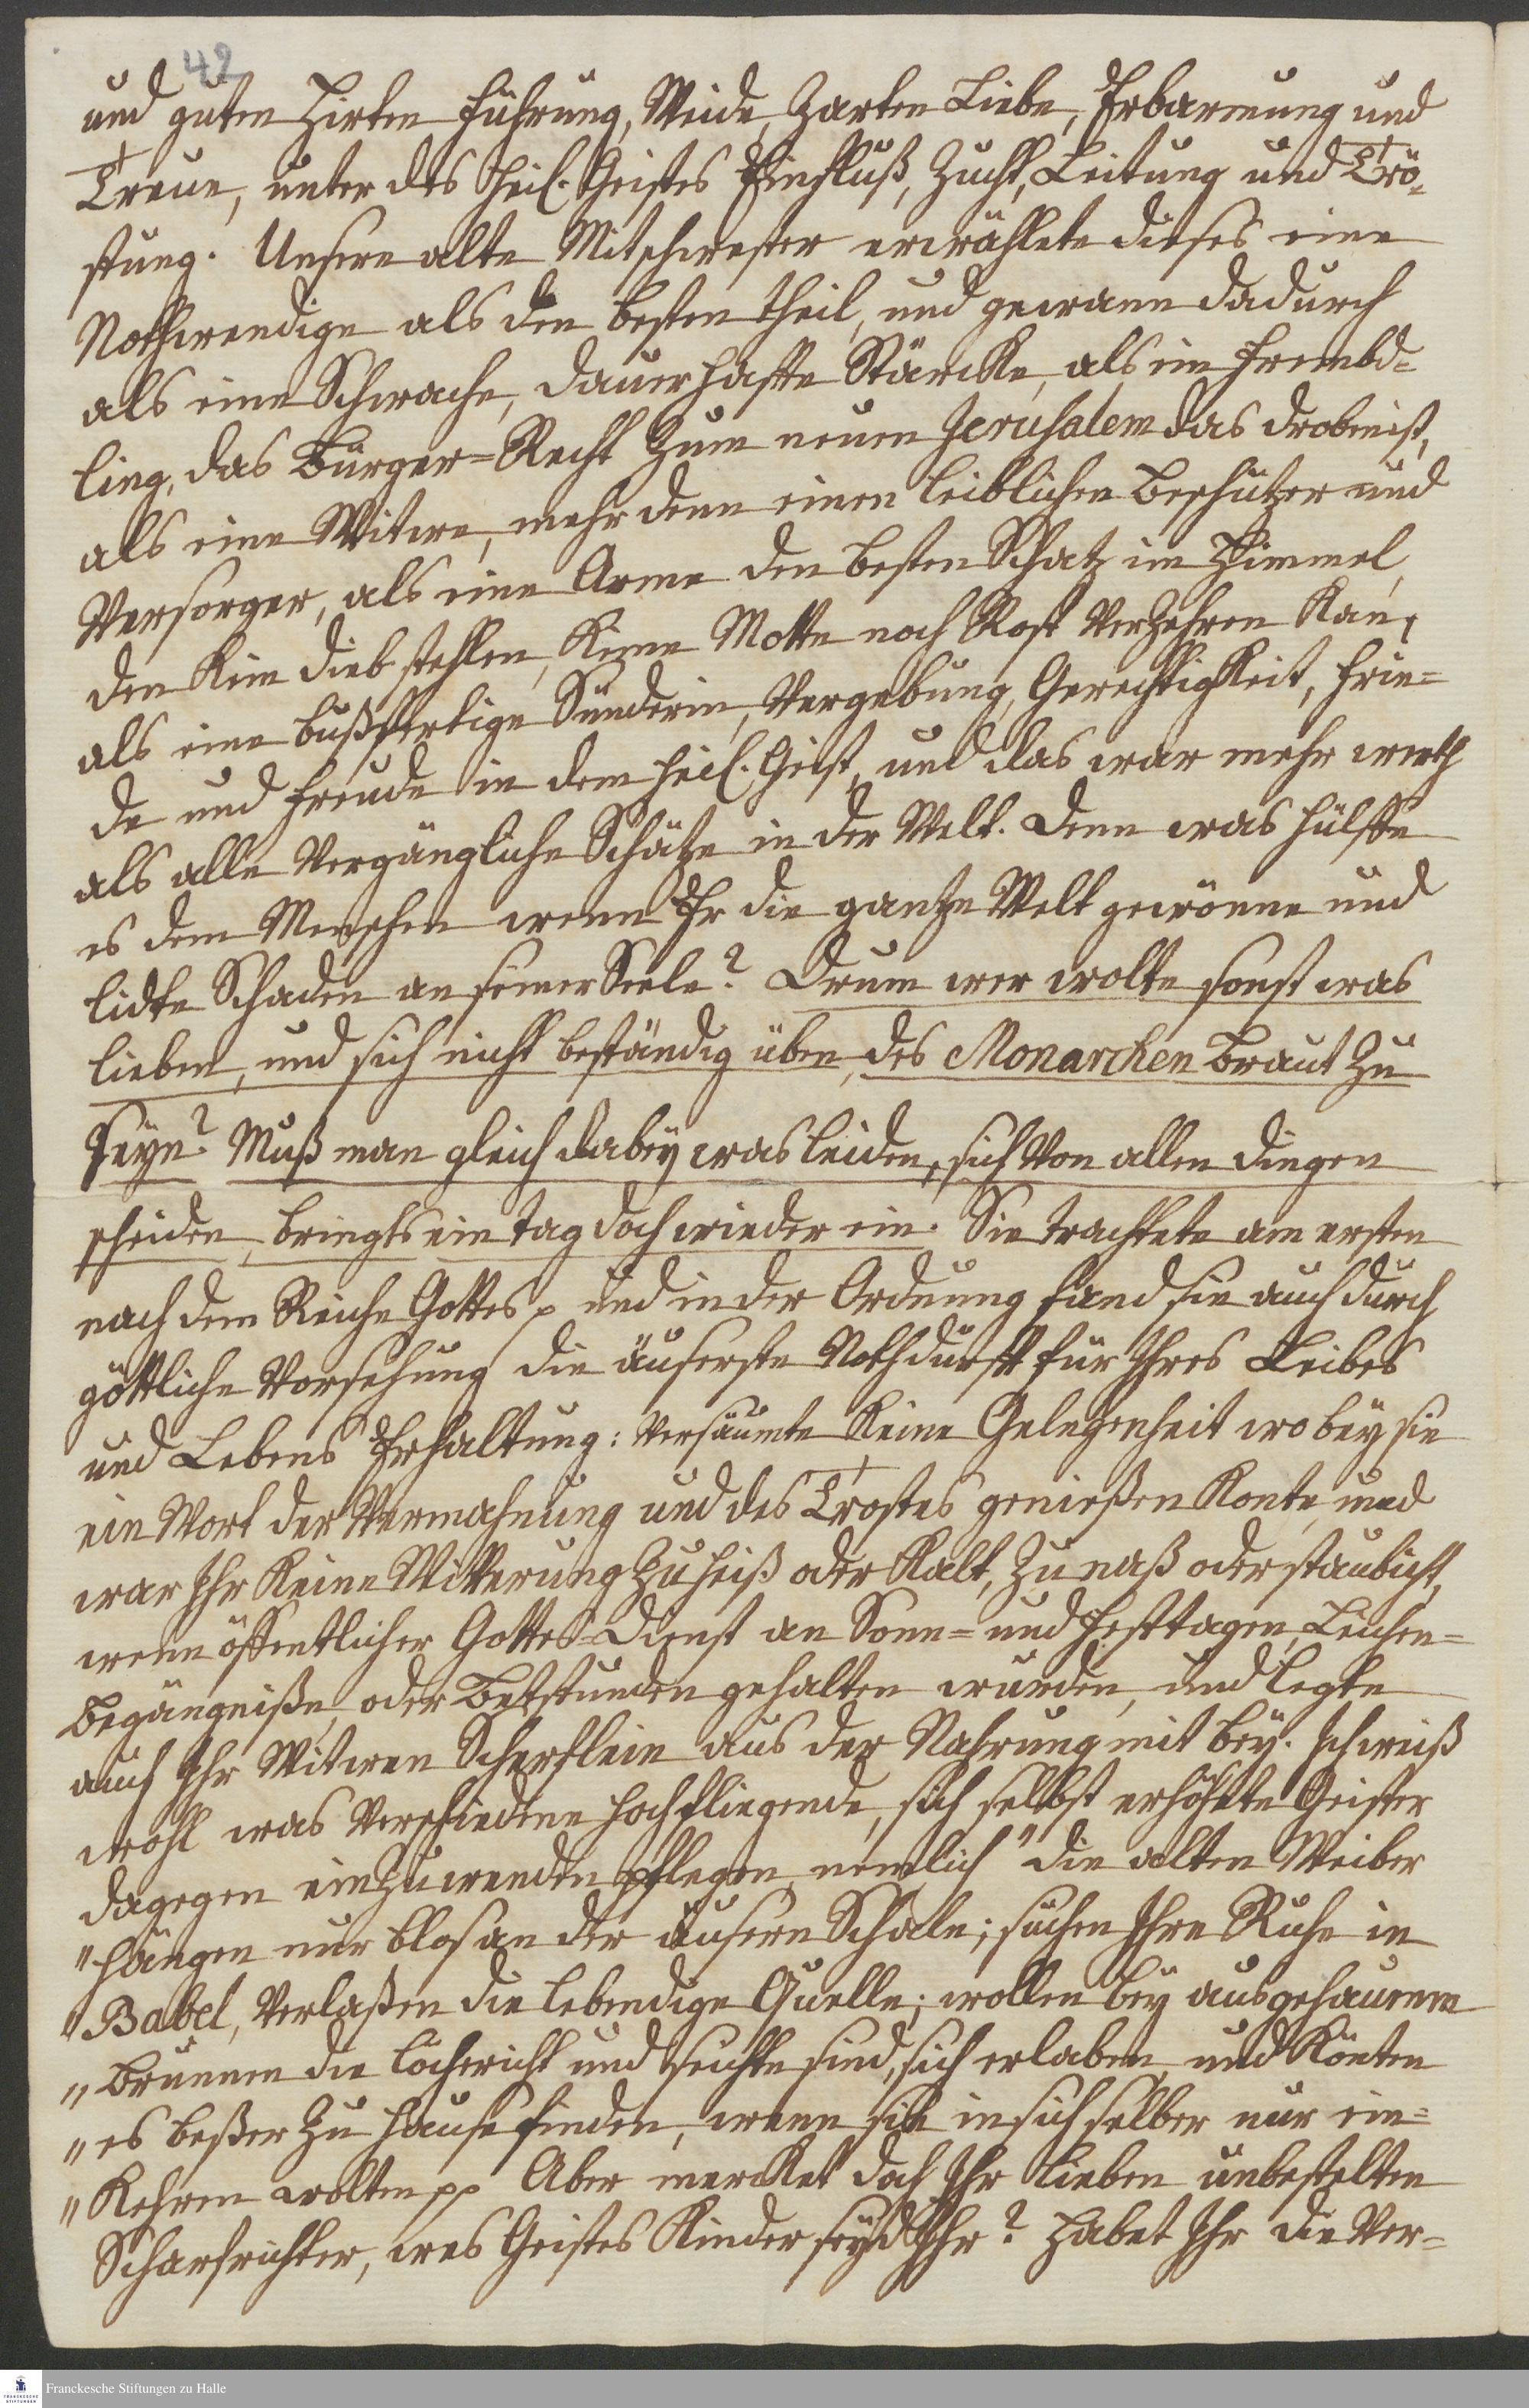 42
und guten Hirten Führung, Weide, Zarten Liebe, Erbarmung und
Treue, unter des Heil. Geistes Einfluß, Zucht, Leitung und Trö-
stung. Unsere alte Mitschwester erwählete dieses eine
Nothwendige als den besten theil, und gewann dadurch
als eine Schwache, dauerhaffte Stärcke, als ein Frembd-
ling, das Bürger=Recht Zum neuen Jerusalem das droben ist,
als eine Witwe, mehr denn einen leiblichen Beschützer und
Versorger, als eine Arme den besten Schatz im Himmel,
den Kein dieb stehlen, Keine Motte noch Rost Verzehren Kan,
als eine bußfertige Sünderin, Vergebung, Gerechtigkeit, Frie=
de und Freude in dem heil. Geist, und das war mehr werth
als alle Vergängliche Schätze in der Welt. Denn was hülffe
es dem Menschen wenn Er die gantze Welt gewönne und
lidte Schaden an seiner Seele? Drum wer wolte sonst was
lieben, und sich nicht beständig üben, des Monarchen Braut Zu
Seyn? Muß man gleich dabey was leiden, sich Von allen dingen
scheiden, bringts ein tag doch wieder ein. Sie trachtete am ersten
nach dem Reiche Gottes p und in der Ordnung fand sie auch durch
göttliche Vorsehung die äuserste Nothdurfft für Ihres Leibes
und Lebens Erhaltung: Versäumte Keine Gelegenheit wobey sie
ein Wort der Vermahnung und des Trostes genießen Konte, und
war Ihr Keine Witterung Zu heiß oder Kalt, Zu naß oder staubicht,
wenn öffentlicher Gottes=Dienst an Sonn= und Festtagen, Leichen=
Begängniße, oder Betstunden gehalten wurden, und legte
auch Ihr Witwen Scherflein aus der Nahrung mit bey. Ich weiß
wohl was Verschiedene hochfliegende, sich selbst erhöhete Geister
dagegen einzuwenden pflegen, nemlich "die alten Weiber
"hängen nur blos an der äusern Schale; suchen Ihre Ruhe in
"Babel, Verlaßen die lebendige Quelle; wollen bey ausgehauenen
"Brunnen die löchericht und seichte sind, sich erlaben, und Könten
"es beßer Zu Hause finden, wenn sie in sich selber nur ein=
"Kehren wolten pp Aber mercket doch Ihr lieben unbestelten
Scharfrichter, wes Geistes Kinder seyd Ihr? Habet Ihr die Ver=
Franckesche Stiftungen zu Halle